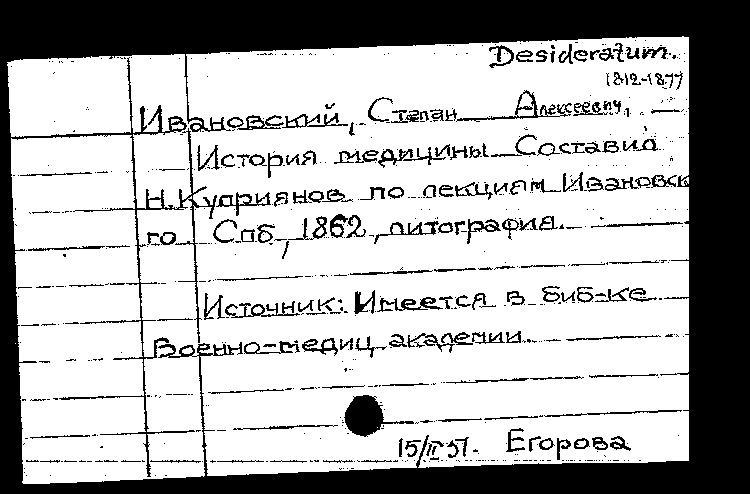 Desideratum.
1812-1877
Ивановский, Степан Алексеевич, —
История медицины Составил
Н. Куприянов по лекциям Ивановск
го. Спб, 1862, литография.
Источник: Имеется в биб-ке
Военно-медиц академии.
15/II 51. Егорова